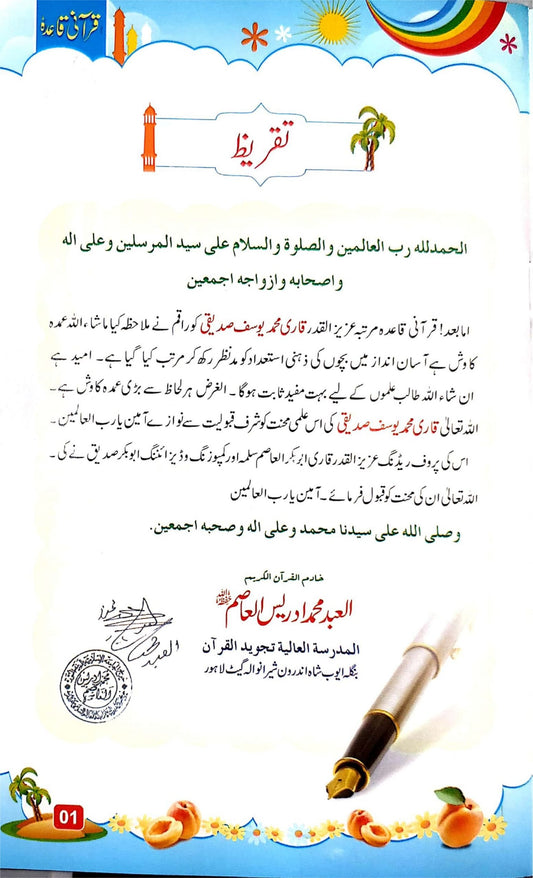 قرآنی قاعدہ
تقریظ
الحمدلله رب العالمين والصلوة والسلام على سيد المرسلين وعلى اله
واصحابه وازواجه اجمعين
امابعد! قرآنی قاعدہ مرتبہ عزیز القدر قاری محمد یوسف صدیقی کو راقم نے ملاحظہ کیا ماشاء اللہ عمدہ
کاوش ہے آسان انداز میں بچوں کی ذہنی استعداد کو مدنظر رکھ کر مرتب کیا گیا ہے۔ امید ہے
ان شاء اللہ طالب علموں کے لیے بہت مفید ثابت ہوگا۔ الغرض ہر لحاظ سے بڑی عمدہ کاوش ہے۔
اللہ تعالیٰ قاری محمد یوسف صدیقی کی اس علمی محنت کو شرف قبولیت سے نوازے آمین یا رب العالمین۔
اس کی پروف ریڈنگ عزیز القدر قاری ابوبکر العاصم سلمہ اور کمپوزنگ و ڈیزائننگ ابوبکر صدیق نے کی۔
اللہ تعالیٰ ان کی محنت کو قبول فرمائے۔ آمین یا رب العالمین
وصلى الله على سيدنا محمد وعلى اله وصحبه اجمعين.
خادم القرآن الكريم
العبد محمد ادریس العاصم
المدرسة العالية تجويد القرآن
بنگلہ ایوب شاہ اندرون شیرانوالہ گیٹ لاہور
محمد ادریس
العاصم
01